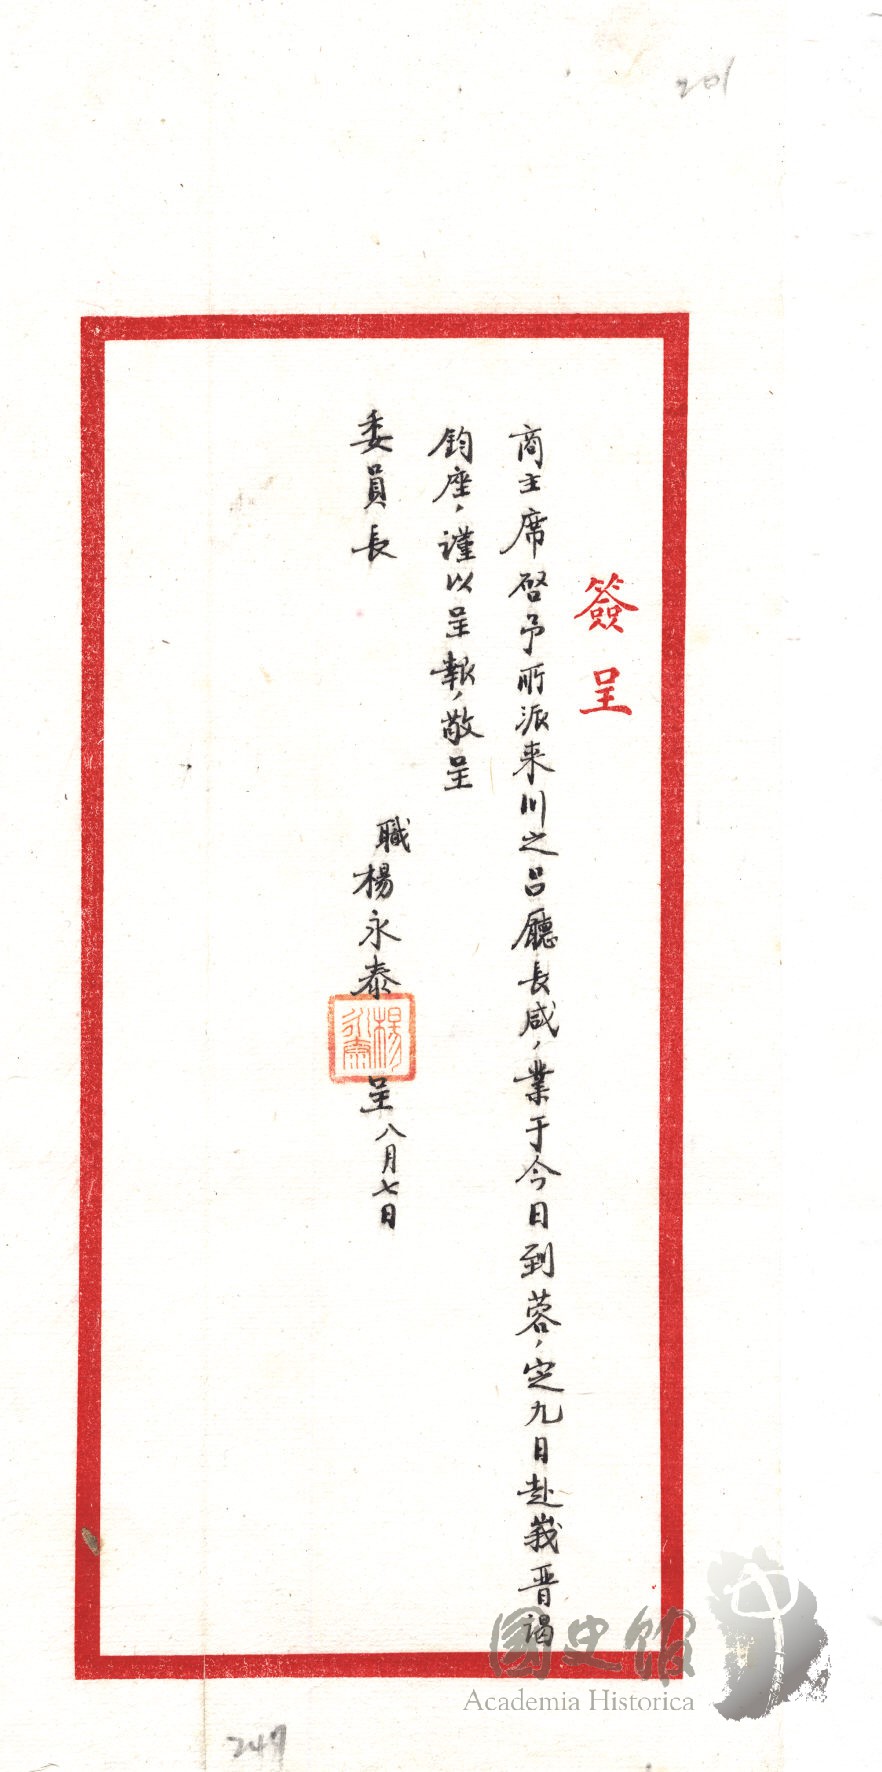 201
簽呈
商主席啓予所派来川之呂廳長咸，業于今日到蓉，定九日赴峩晋謁
鈞座，謹以呈報，敬呈
委員長
職楊永泰呈八月七日
楊永泰
國史館
Academia Historica
247